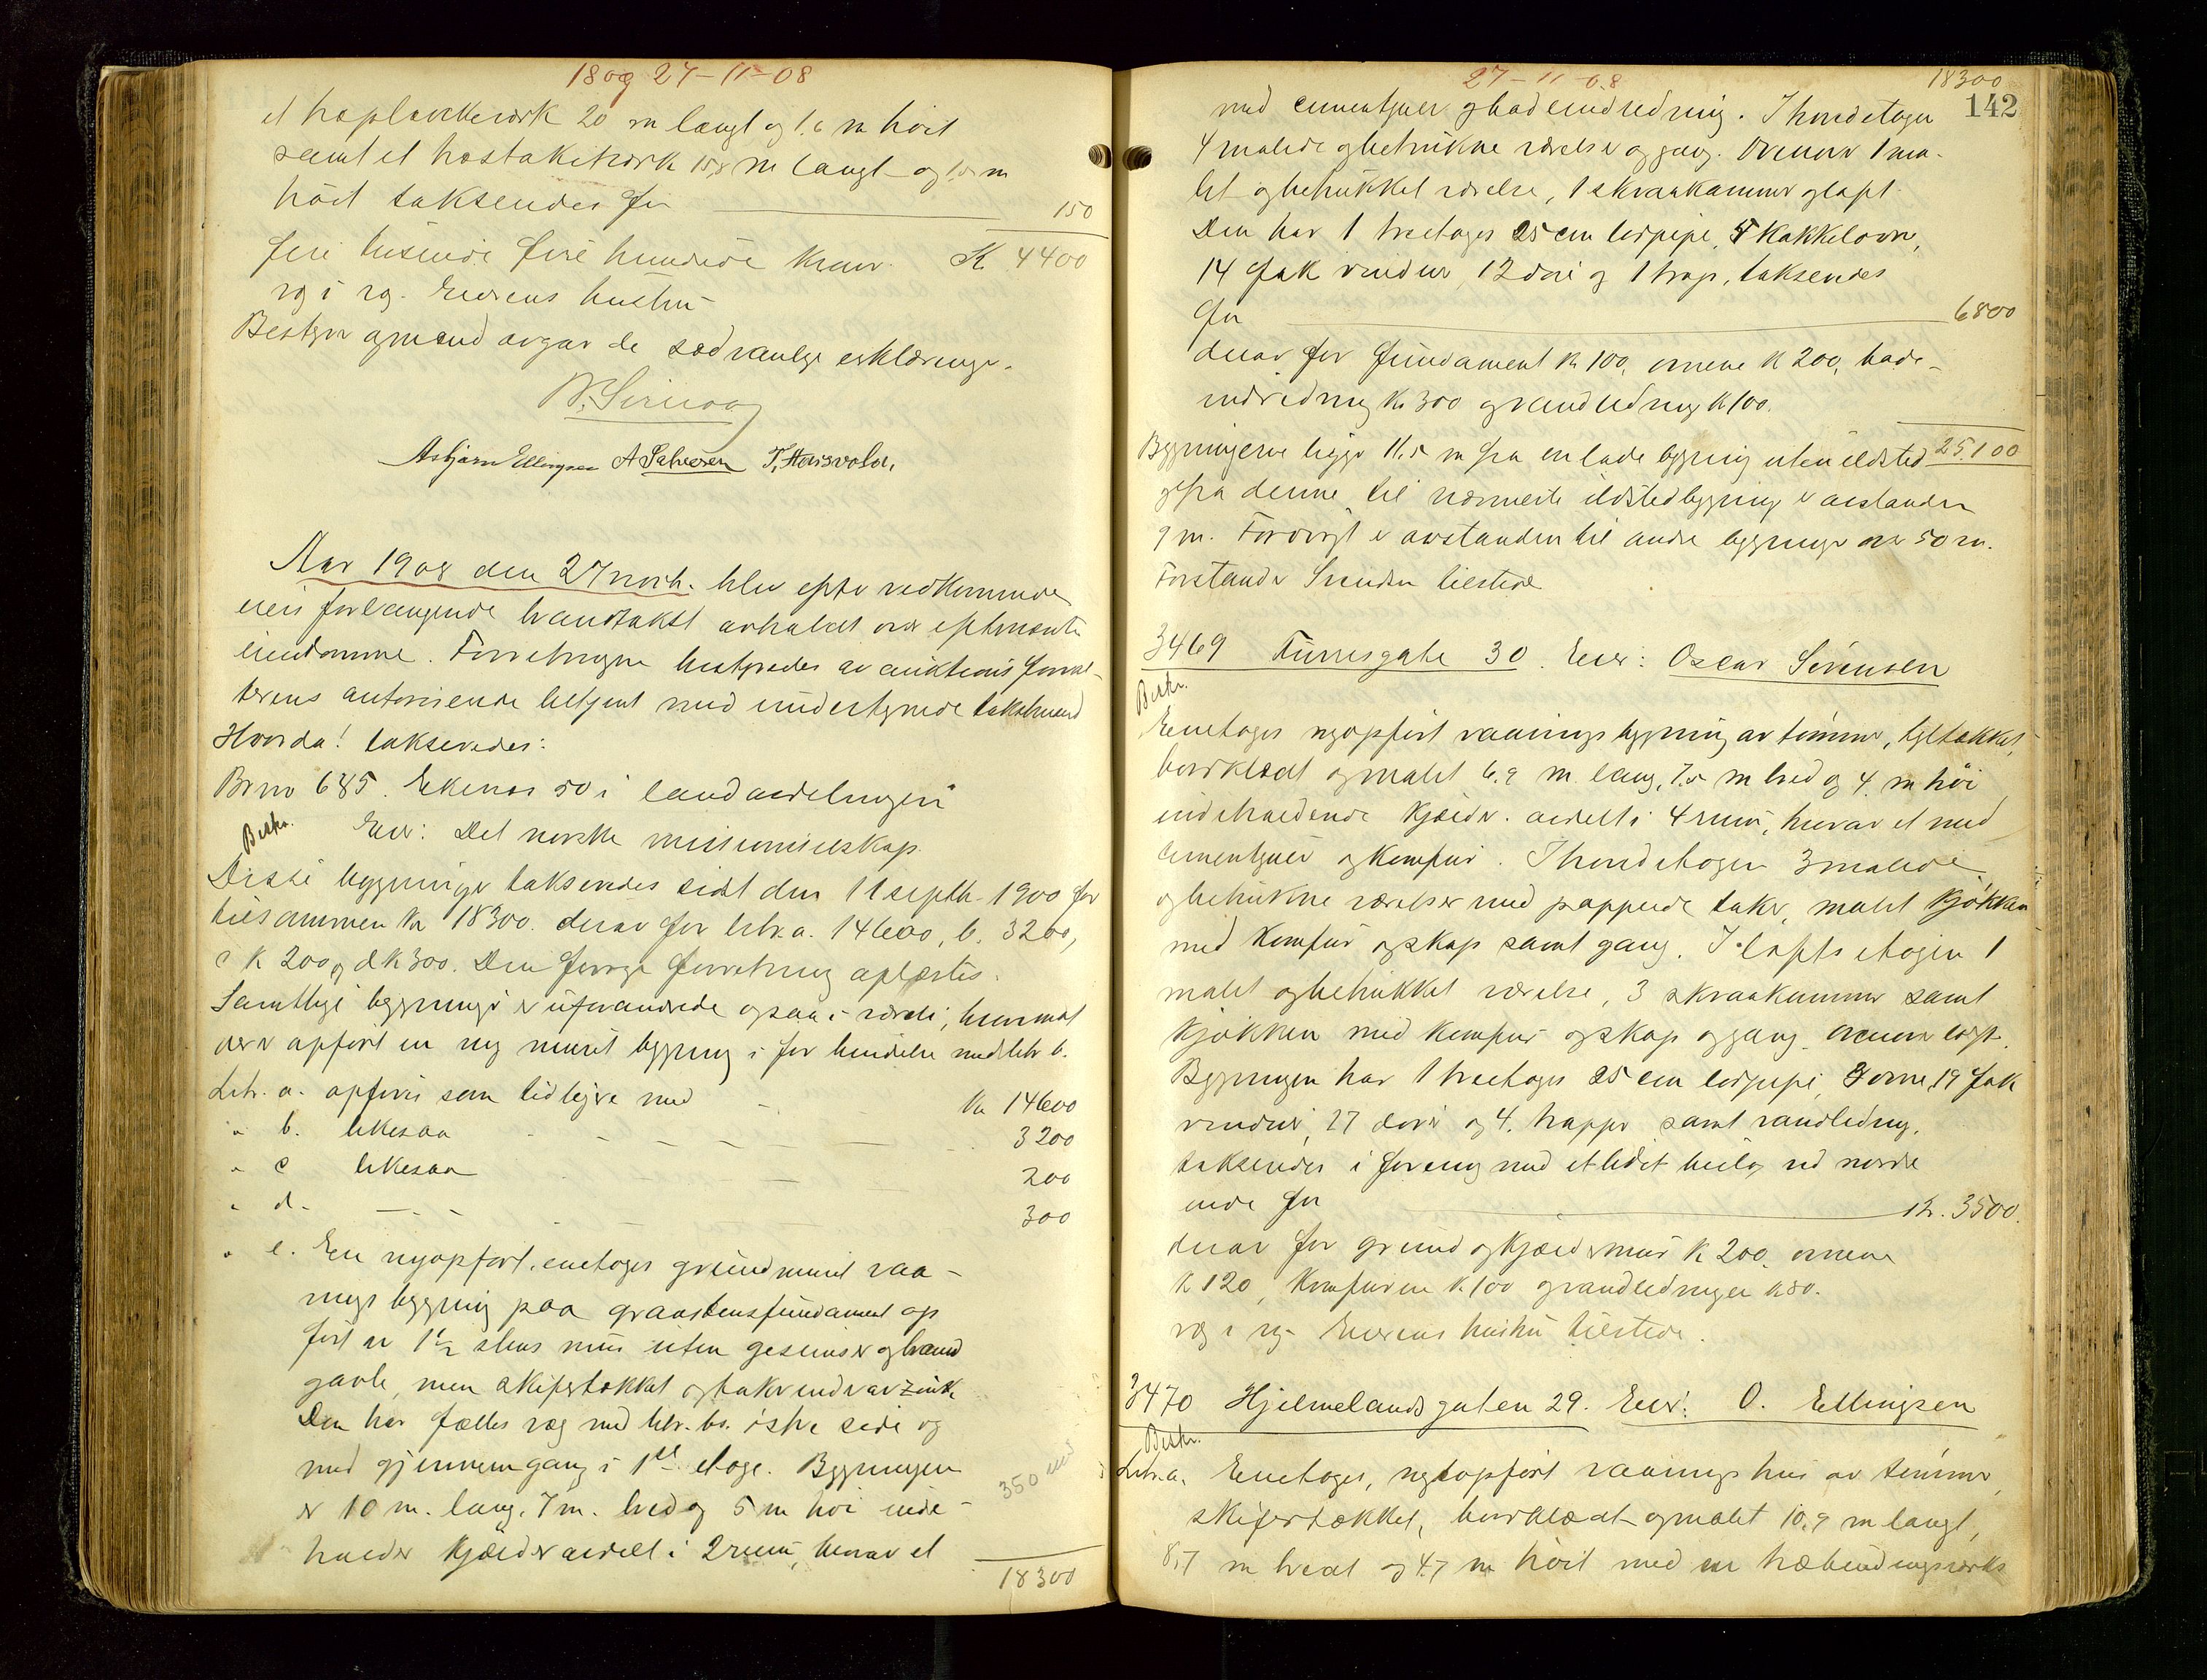 18 og 27-11-08
et træplankeverk 20 m langt og 1.6 m høit
samt et træstakitverk 15,8 m langt og 1.0 m
høit takseredes for 150
fire tusinde fire hundrede kroner. K. 4400
rg i rg. Eierens hustru
Bestyrer og mænd avgav de sædvanlige erklæringer.
Asbjørn Ellingsen A Salvesen T. Høisvold.
Aar 1908 den 27 novb. blev efter vedkommende
eiers forlangende brandtakst avholdt over efternævnte
eiendomme. Forretningen bestyredes av auktionsforval-
terens autoriserede betjent med undertegnede takstmænd
Hvorda! takseredes:
Brno 685. Ekenes 50 i landavdelingen
Beskr. Eier: Det norske missionsselskap.
Disse bygninger takseredes sidst den 11 septbr 1900 for
tilsammen kr 18300. derav for litr. a. 14600, b. 3200,
c k 200 og d k 300. Den forrige forretning oplæstes.
Samtlige bygninger er uforandrede ogsaa i værdi, hvorimot
der er opført en ny muret bygning i forbindelse med litr b.
Litr. a. opføres som tidligere med kr 14600
" b. likesaa 3200
" c likesaa 200
" d. 300
" e. En nyopført, enetages grundmuret vaa-
nings bygning paa graastensfundament op
ført av 1 1/2 stens mur uten gesimser og brand
gavle, men skifertækket og takrender av zink.
Den har fælles væg med litr. b s. østre side og
med gjennemgang i 1ste etage. Bygningen
er 10 m. lang, 7 m. bred og 5 m høi inde-
holder kjælder avdelt i 2 rum, hvorav et
18300
27-11-08 18300
142
med cementgulv og badeindredning. I hovedetagen
4 malede og betrukne værelser og gang. Ovenover 1 ma-
let og betrukket værelse, 1 skraakammer og loft.
Den har 1 treetages 25 cm lerpipe, 5 kakkelovne,
14 fak vinduer, 12 døre og 1 trap, takseredes
for 6800
derav for fundament kr 100, ovnene k 200, bade-
indredning kr 300 og vandledning k 100.
25.100
Bygningerne ligger 11.5 m fra en lade bygning uten ildsted
og fra denne til nærmeste ildstedbygning er avstanden
9 m. Forøvrigt er avstanden til andre bygninger over 50 m.
Forstander Svendsen tilstede
3469 Funnesgate 30. Eier: Oscar Sørensen
Beskr.
Enetages nyopført vaaningsbygning av tømmer, tegltækket,
bordklædt og malet 6.9 m lang, 7.5 m bred og 4. m høi
indeholdende kjælder. avdelt i 4 rum, hvorav et med
cementgulv og komfur. I hovedetagen 3 malede
og betrukne værelser med pappede taker, malet kjøkken
med komfur og skap samt gang. I loftsetagen 1
malet og betrukket værelse, 3 skraakammer samt
kjøkken med komfur og skap og gang. ovenover loft.
Bygningen har 1 treetages 25 cm lerpipe, 3 ovne, 19 fak
vinduer, 27 døre og 4. trapper samt vandledning.
takseredes i forening med et lidet bislag ved nordre
ende for kr. 3500.
derav for grund og kjældermur k 200. ovnene
k 120, komfurene k. 100 og vandledningen k 80.
rg i rg. Eierens hustru tilstede.
3470 Hjelmelandsgaten 29. Eier: O. Ellingsen
Beskr.
Litr. a. Enetages, nyopført vaaningshus av tømmer,
skifertækket, bordklædt og malet 10,9 m langt,
8,7 m bredt og 4,7 m høit med en træbindingsverks